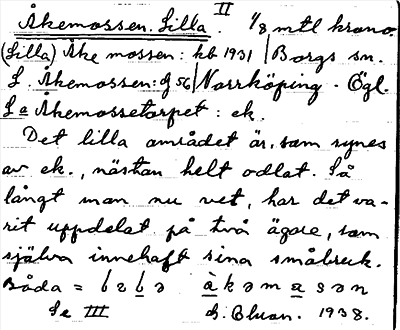 Åkemossen. Lilla. II 1/8 mtl krono.
(Lilla) Åke mossen: kb 1931 | Borgs sn.
L. Åkemossen: g 56 | Norrköping - Ögl.
La Åkemossetorpet: ek.
Det lilla området är, som synes
av ek., nästan helt odlat. Så
långt man nu vet, har det va-
rit uppdelat på två ägare, som
själva innehaft sina småbruk.
Båda =
Se III 1938.